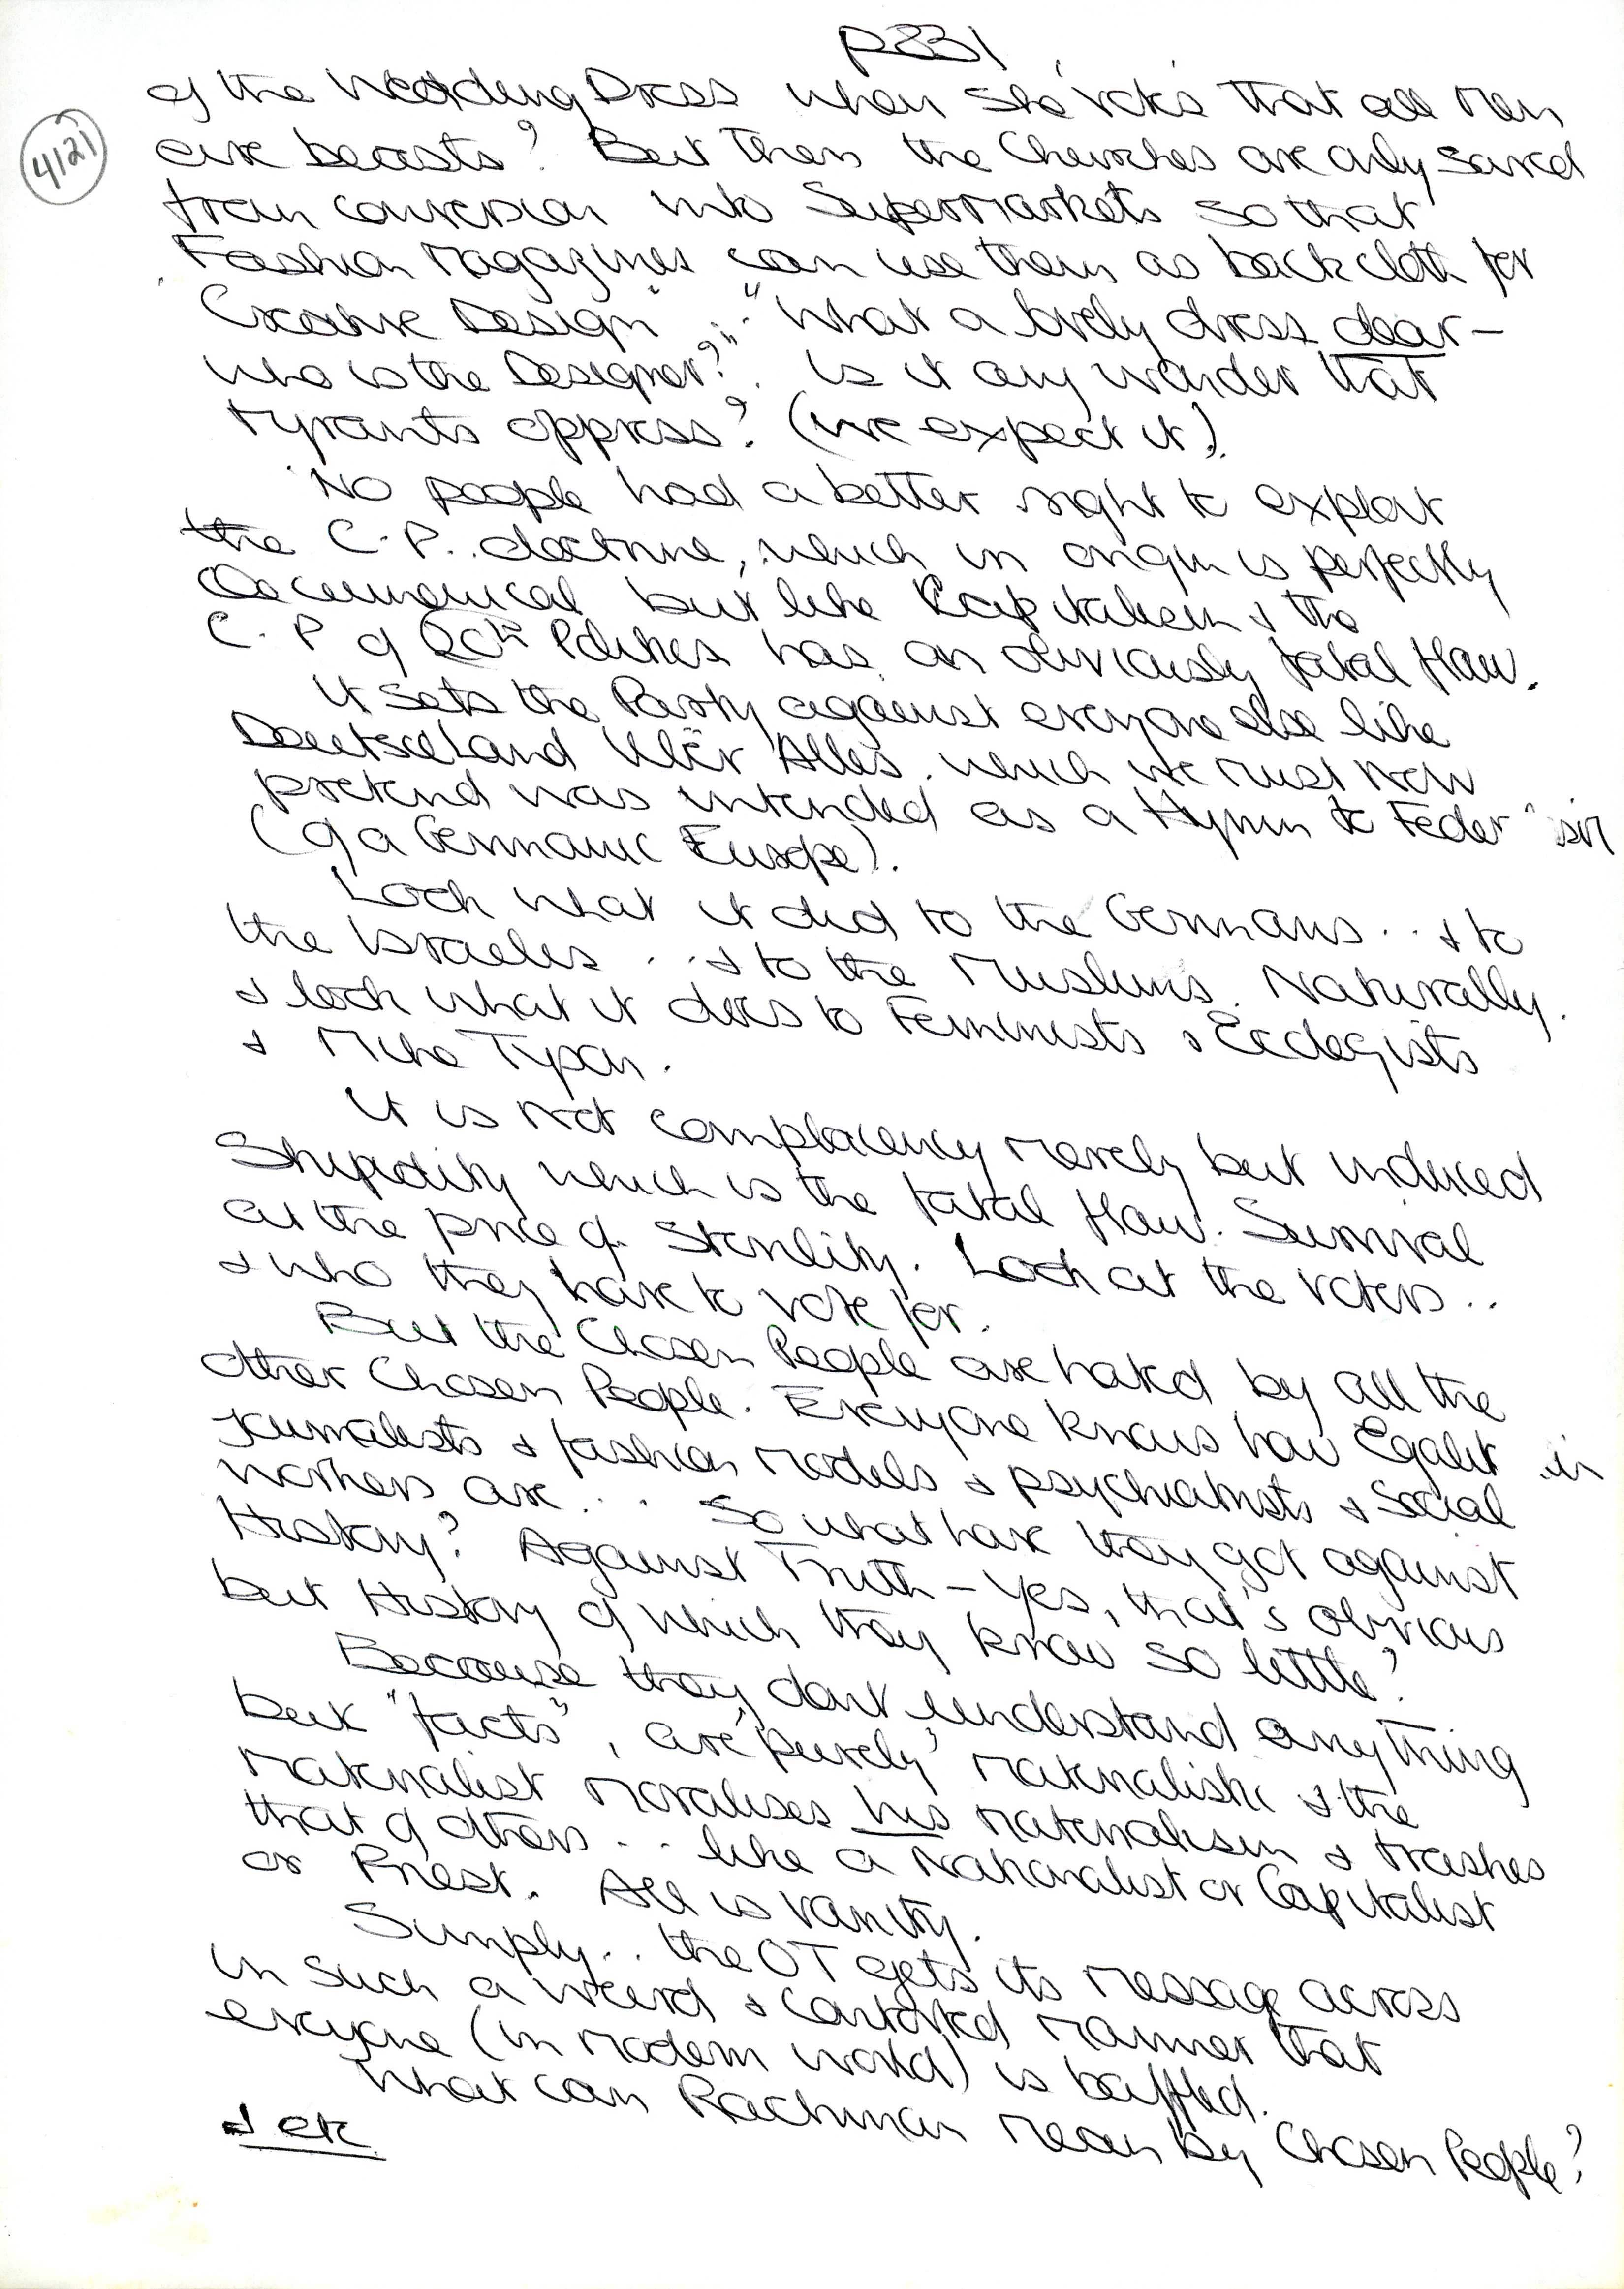 p231
4121
of the Wedding Dress when she votes that all men
are beasts? But then the Churches are only saved
from conversion into Supermarkets so that
Fashion Magazines can use them as backcloth for
Creative Design" .. "What a lovely dress dear –
who is the Designer?". Is it any wonder that
tyrants oppress? (we expect it).
No people had a better right to exploit
the C.P. doctrine, which in origin is perfectly
Oecumenical but like Capitalism & the
C.P of 20th Politics has an obviously fatal flaw.
It sets the Party against everyone else like
Deutsceland Uber Alles. which we must now
pretend was intended as a Hymn to Feder ism
(of a Germanic Europe).
Look what it did to the Germans .. & to
the Israelis ... & to the Muslims. Naturally.
& look what it does to Feminists & Ecologists
& Mike Tyson.
It is not complacency merely but induced
Stupidity which is the fatal flaw. Survival
at the price of Sterility. Look at the voters ..
& who they have to vote for.
But the Chosen People are hated by all the
other Chosen People. Everyone knows how Egalit in
Journalists & fashion models & psychiatrists & Social
Workers are ... So what have they got against
History? Against Truth – yes, that's obvious
but History of which they know so little?
Because they dont understand anything
but "facts", are 'purely' materialistic & the
materialist moralises his materialism & trashes
that of others .. like a Nationalist or Capitalist
or Priest. All is vanity.
Simply .. the OT gets its message across
in such a weird & contorted manner that
everyone (in modern world) is baffled.
What can Rachman mean by Chosen People?
& etc